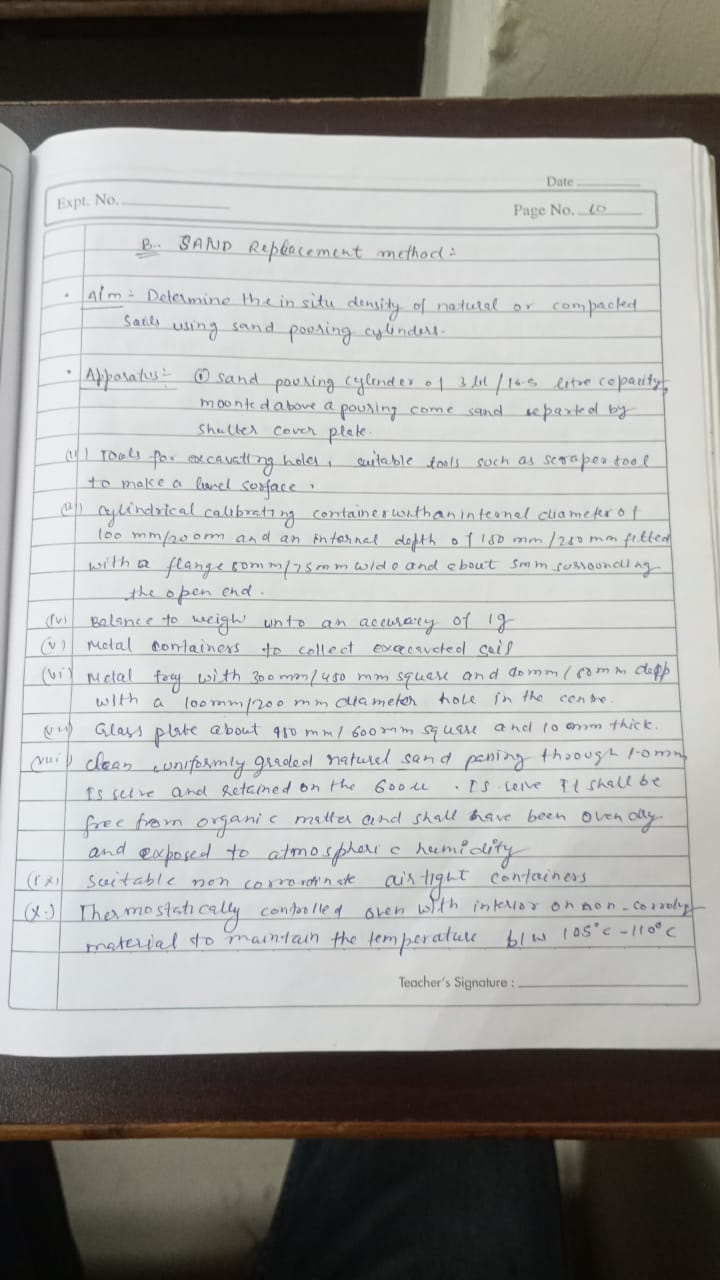 Date
Expt. No.
Page No. 10
B.. SAND Replacement method:
Aim:- Determine the in situ density of natural or compacted
soils using sand pouring cylinders.
Apparatus:- (i) sand pouring cylinder of 3 lit / 16.5 litre capacity,
moonted above a pouring come sand separted by
shutter cover plate.
(ii) Tools for excavating holes, suitable tools such as scraper tool
to make a level surface.
(iii) cylindrical calibrating container with an internal diameter of
100 mm/200m and an internal depth of 150 mm/250 mm fitted
with a flange 50mm/75mm wide and about 5mm surrounding
the open end.
(iv) Balance to weigh unto an accuracy of 1g
(v) Metal containers to collect excavated soil
(vi) Metal tray with 300mm/450 mm square and 40mm/50mm deep
with a 100mm/200 mm diameter hole in the centre.
(vii) Glass plate about 450 mm/ 600mm square and 10 mm thick.
(viii) clean, uniformly graded natural sand passing through 1.0mm
IS seive and retained on the 600u . IS seive It shall be
free from organic matter and shall have been oven day
and exposed to atmospheric humidity
(ix) Suitable non airtight containers
(x.) Thermostatically controlled oven with interior on non-
material to maintain the temperature b/w 105°c -110°c
Teacher's Signature :